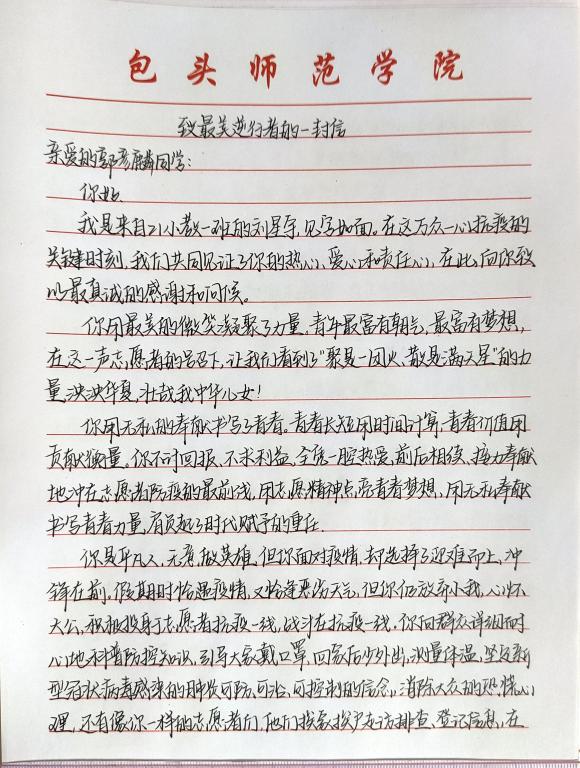 包头师范学院
致最美逆行者的一封信
亲爱的郭彦麟同学:
你好
我是来自21小教一班的刘星宇,见字如面。在这万众一心抗疫的
关键时刻,我们共同见证了你的热心、爱心和责任心,在此,向你致
以最真诚的感谢和问候。
你用最美的微笑凝聚了力量。青年最富有朝气,最富有梦想,
在这一声志愿者的号召下,让我们看到了"聚是一团火、散是满天星"的力
量,泱泱华夏,壮哉我中华儿女!
你用无私的奉献书写了青春。青春长短用时间计算,青春价值用
贡献衡量。你不讨回报,不求利益,全凭一腔热爱,前后相续、接力奉献
地冲在志愿者防疫的最前线,用志愿精神点亮青春梦想,用无私奉献
书写青春力量,肩负起了时代赋予的重任.
你是平凡人,无意做英雄,但你面对疫情,却选择了迎难而上,冲
锋在前,假期时恰遇疫情,又恰逢恶劣天气,但你仍放弃小我,心怀
大公,积极投身于志愿者抗疫一线,战斗在抗疫一线,你向群众详细而耐
心地科普防控知识,引导大家戴口罩,回家后少外出,测量体温,坚定新
型冠状病毒感染的肺炎可防、可治、可控制的信念,消除大众的恐慌心
理,还有像你一样的志愿者们,他们挨家挨户走访排查、登记信息,在